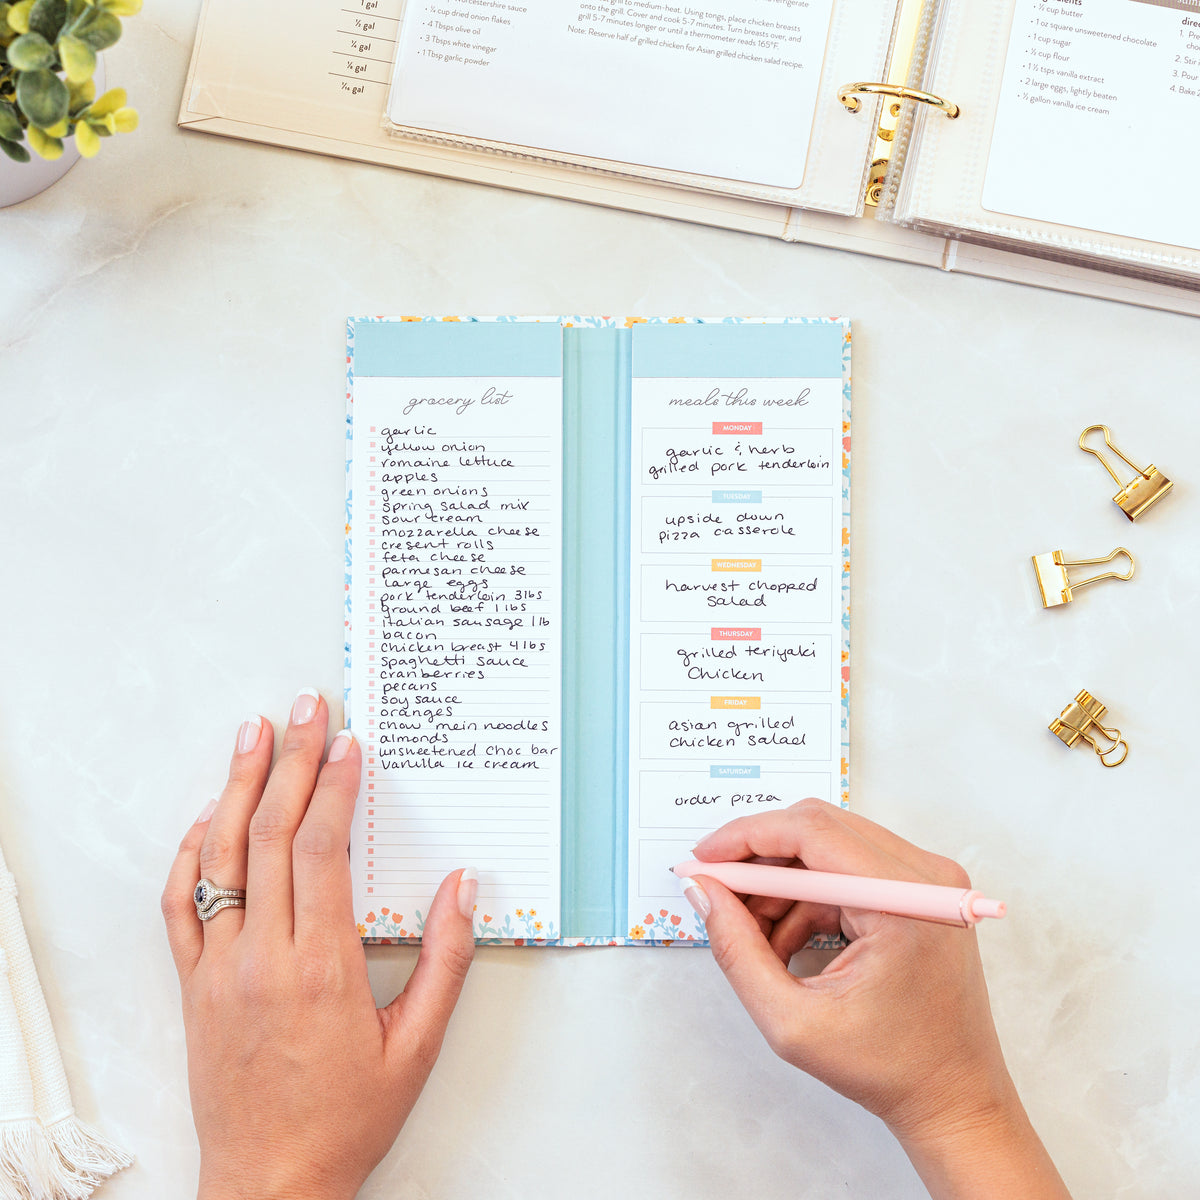 1 gal
½ gal
¼ gal
⅛ gal
1/16 gal
Worcestershire sauce
• ¼ cup dried onion flakes
• 4 Tbsps olive oil
• 3 Tbsps white vinegar
• 1 Tbsp garlic powder
grill to medium-heat. Using tongs, place chicken breasts
onto the grill. Cover and cook 5-7 minutes. Turn breasts over, and
grill 5-7 minutes longer or until a thermometer reads 165°F.
Note: Reserve half of grilled chicken for Asian grilled chicken salad recipe.
refrigerate
• ½ cup butter
• 1 oz square unsweetened chocolate
• 1 cup sugar
• ½ cup flour
• 1 ½ tsps vanilla extract
• 2 large eggs, lightly beaten
• ½ gallon vanilla ice cream
direc
1. Pre
cho
2. Stir i
3. Pour
4. Bake 2
grocery list
garlic
yellow onion
romaine lettuce
apples
green onions
spring salad mix
sour cream
mozzarella cheese
cresent rolls
feta cheese
parmesan cheese
large eggs
pork tenderloin 3lbs
ground beef 1 lbs
italian sausage 1 lb
bacon
chicken breast 4 lbs
spaghetti sauce
cranberries
pecans
soy sauce
oranges
chow mein noodles
almonds
unsweetened choc bar
vanilla ice cream
meals this week
MONDAY
garlic & herb
grilled pork tenderloin
TUESDAY
upside down
pizza casserole
WEDNESDAY
harvest chopped
salad
THURSDAY
grilled teriyaki
chicken
FRIDAY
asian grilled
chicken salad
SATURDAY
order pizza